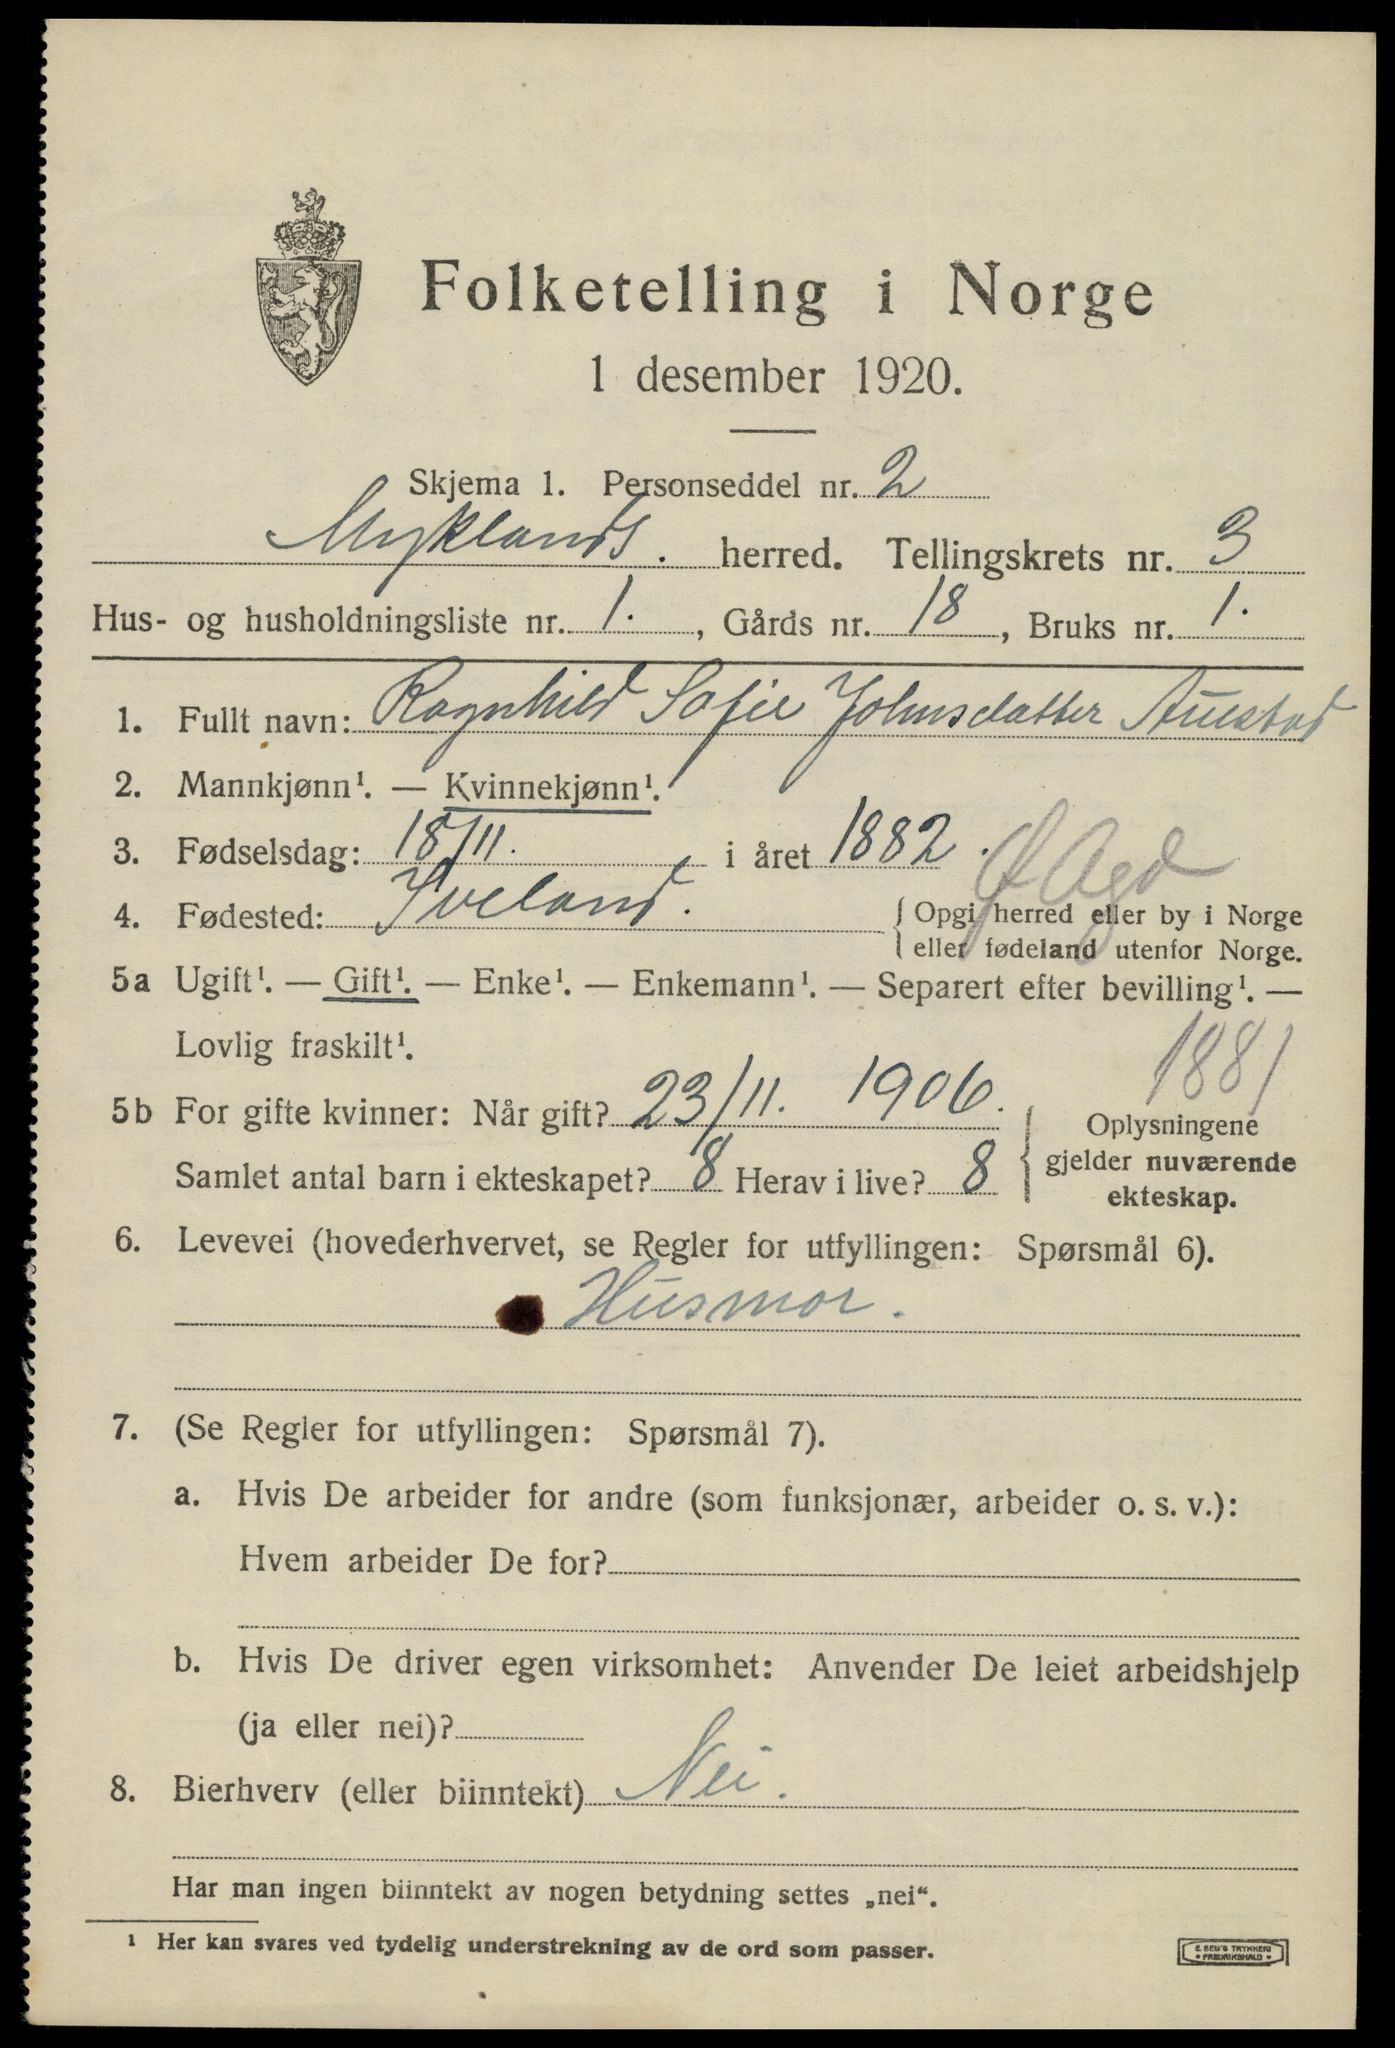 Folketelling i Norge
1 desember 1920.
Skjema 1. Personseddel nr. 2
Myklands. herred. Tellingskrets nr. 3
Hus- og husholdningsliste nr. 1. , Gårds nr. 18 , Bruks nr. 1.
1. Fullt navn: Ragnhild Sofie Johnsdatter Austad
2. Mannkjønn¹. — Kvinnekjønn¹.
3. Fødselsdag: 18/11. i året 1882.
Ø Agd
4. Fødested: Iveland. { Opgi herred eller by i Norge
eller fødeland utenfor Norge.
5a Ugift¹. — Gift¹. — Enke¹. — Enkemann¹. — Separert efter bevilling¹. —
Lovlig fraskilt¹.
1881
5b For gifte kvinner: Når gift? 23/11. 1906. { Oplysningene
gjelder nuværende
ekteskap.
Samlet antal barn i ekteskapet? 8 Herav i live? 8
6. Levevei (hovederhvervet, se Regler for utfyllingen: Spørsmål 6).
Husmor.
7. (Se Regler for utfyllingen: Spørsmål 7).
a. Hvis De arbeider for andre (som funksjonær, arbeider o. s. v.):
Hvem arbeider De for?
b. Hvis De driver egen virksomhet: Anvender De leiet arbeidshjelp
(ja eller nei)?
8. Bierhverv (eller biinntekt) Nei.
Har man ingen biinntekt av nogen betydning settes „nei“.
¹ Her kan svares ved tydelig understrekning av de ord som passer.
E. SEM'S TRYKKERI
• FREDRIKSHALD •